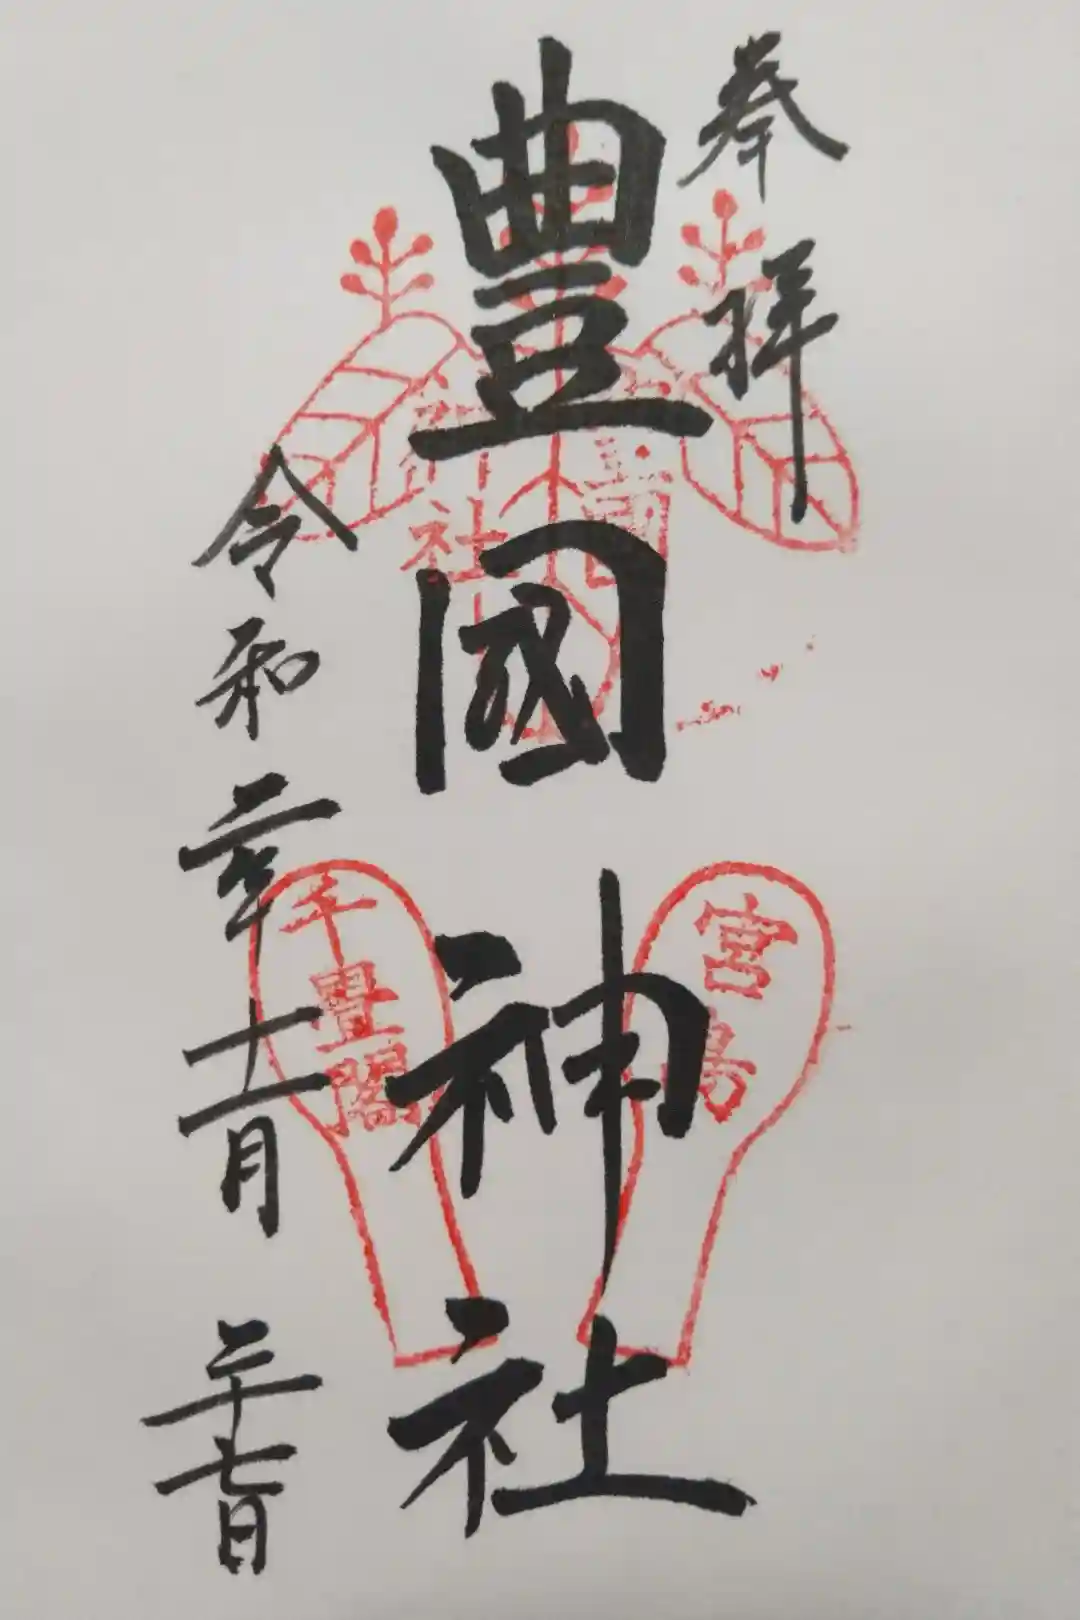 奉拝
豊國神社
令和二年十一月二十七日
宮島
千畳閣